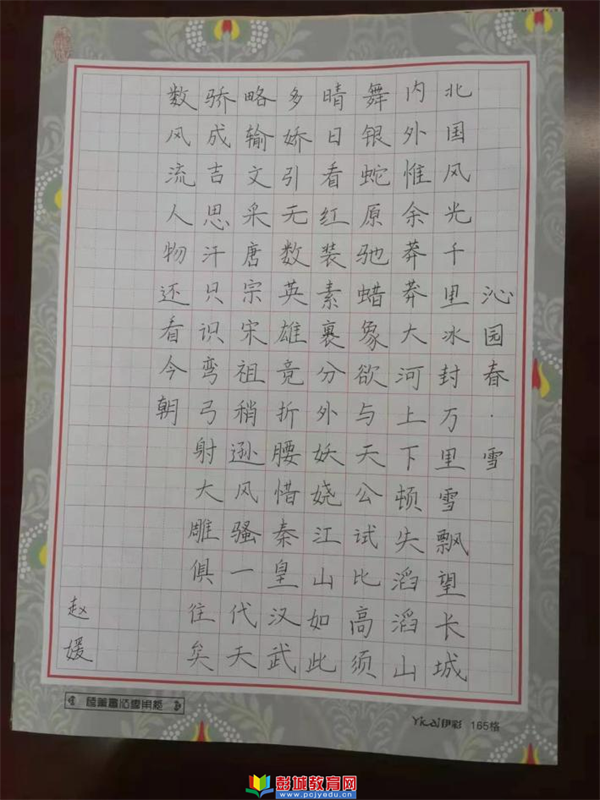 沁园春·雪
北国风光千里冰封万里雪飘望长城
内外惟余莽莽大河上下顿失滔滔山
舞银蛇原驰蜡象欲与天公试比高须
晴日看红装素裹分外妖娆江山如此
多娇引无数英雄竟折腰惜秦皇汉武
略输文采唐宗宋祖稍逊风骚一代天
骄成吉思汗只识弯弓射大雕俱往矣
数风流人物还看今朝
赵媛
Yicai伊彩 165格
彭城教育网
www.pcjyedu.cn